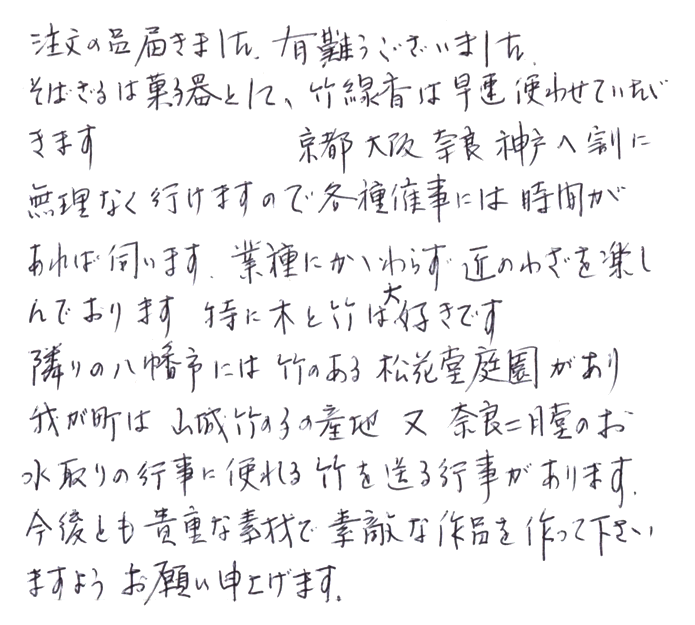 注文の品届きました. 有難うございました.
そばざるは菓子器として、竹線香は早速使わせていただ
きます 京都 大阪 奈良 神戸へ割に
無理なく行けますので各種催事には時間が
あれば伺います. 業種にかゝわらず 近のわざを楽し
んでおります 特に木と竹は大好きです
隣りの八幡市には竹のある松花堂庭園があり
我が町は山城竹の子の産地 又 奈良二月堂のお
水取りの行事に使れる竹を送る行事があります.
今後とも貴重な素材で素敵な作品を作って下さい
ますようお願い申上げます.